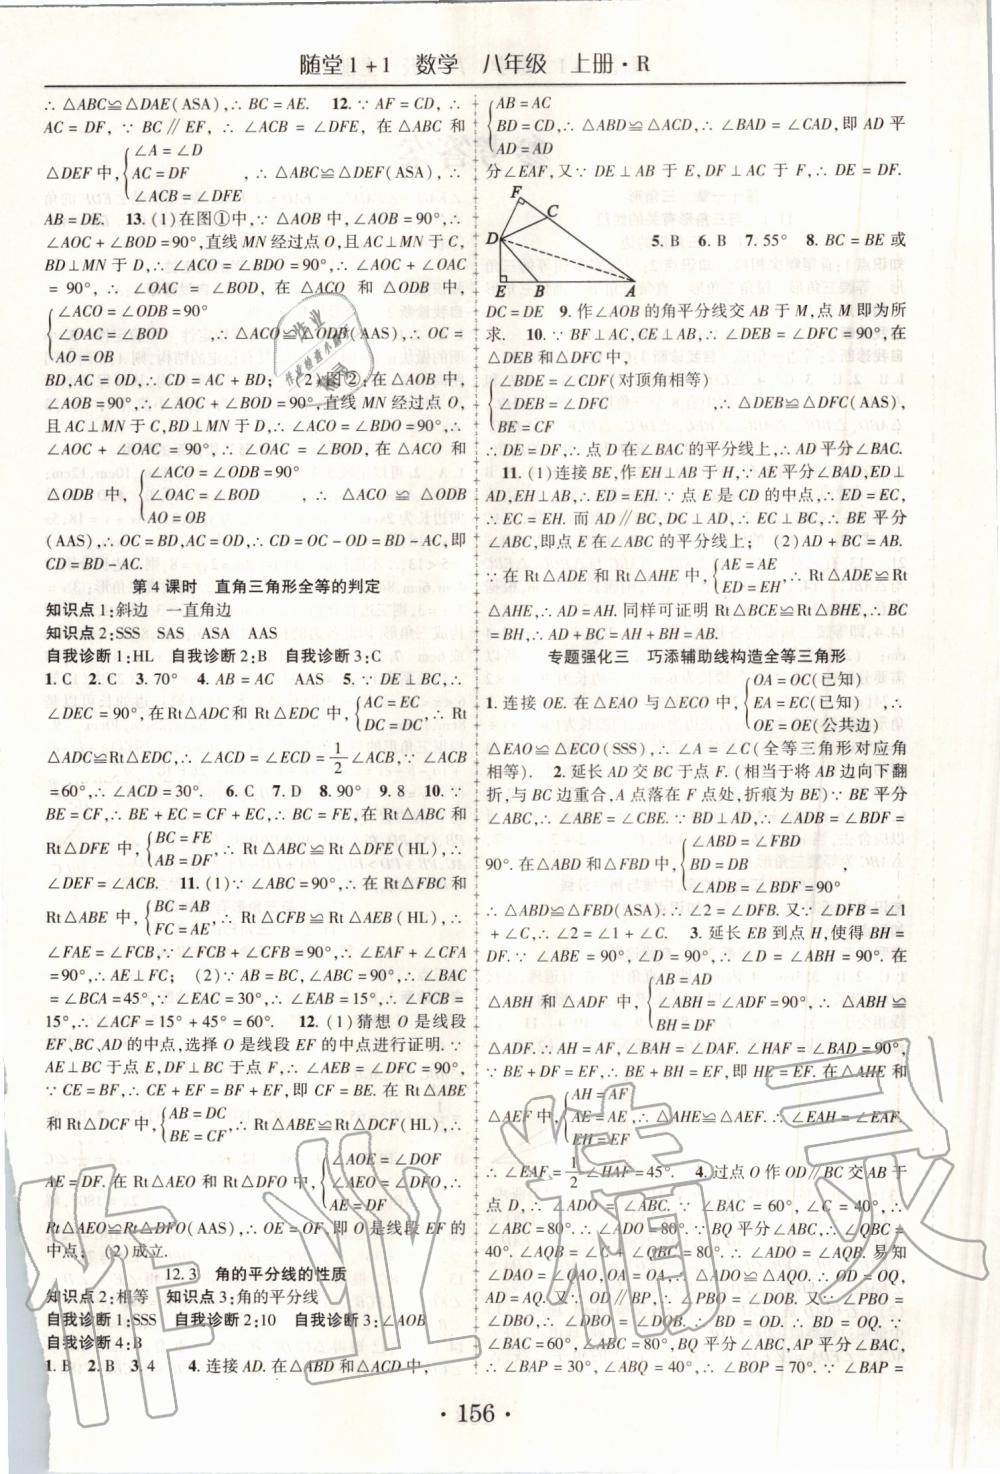 随堂1+1 数学 八年级 上册·R
∴△ABC≌△DAE(ASA),∴BC=AE. 12.∵AF=CD,∴
AC=DF,∵BC∥EF,∴∠ACB=∠DFE,在△ABC和
△DEF中,{∠A=∠D
AC=DF
∠ACB=∠DFE
,∴△ABC≌△DEF(ASA),∴
AB=DE. 13.(1)在图①中,∵△AOB中,∠AOB=90°,∴
∠AOC+∠BOD=90°,直线MN经过点O,且AC⊥MN于C,
BD⊥MN于D,∴∠ACO=∠BDO=90°,∴∠AOC+∠OAC=
90°,∴∠OAC=∠BOD,在△ACO和△ODB中,
{∠ACO=∠ODB=90°
∠OAC=∠BOD
AO=OB
,∴△ACO≌△ODB(AAS),∴OC=
BD,AC=OD,∴CD=AC+BD;(2)图②,在△AOB中,
∠AOB=90°,∴∠AOC+∠BOD=90°,直线MN经过点O,
且AC⊥MN于C,BD⊥MN于D,∴∠ACO=∠BDO=90°,∴
∠AOC+∠OAC=90°,∴∠OAC=∠BOD,在△ACO和
△ODB中,{∠ACO=∠ODB=90°
∠OAC=∠BOD
AO=OB
,∴△ACO≌△ODB
(AAS),∴OC=BD,AC=OD,∴CD=OC-OD=BD-AC,即
CD=BD-AC.
第4课时 直角三角形全等的判定
知识点1:斜边 一直角边
知识点2:SSS SAS ASA AAS
自我诊断1:HL 自我诊断2:B 自我诊断3:C
1.C 2.C 3.70° 4.AB=AC AAS 5.∵DE⊥BC,∴
∠DEC=90°,在Rt△ADC和Rt△EDC中,{AC=EC
DC=DC
,∴Rt
△ADC≌Rt△EDC,∴∠ACD=∠ECD=1/2∠ACB,∵∠ACB
=60°,∴∠ACD=30°. 6.C 7.D 8.90° 9.8 10.∵
BE=CF,∴BE+EC=CF+EC,∴BC=FE,在Rt△ABC和
Rt△DFE中,{BC=FE
AB=DF
,∴Rt△ABC≌Rt△DFE(HL),∴
∠DEF=∠ACB. 11.(1)∵∠ABC=90°,∴在Rt△FBC和
Rt△ABE中,{BC=AB
FC=AE
,∴Rt△CFB≌Rt△AEB(HL),∴
∠FAE=∠FCB,∵∠FCB+∠CFB=90°,∴∠EAF+∠CFA
=90°,∴AE⊥FC;(2)∵AB=BC,∠ABC=90°,∴∠BAC
=∠BCA=45°,∵∠EAC=30°,∴∠EAB=15°,∴∠FCB=
15°,∴∠ACF=15°+45°=60°. 12.(1)猜想O是线段
EF、BC、AD的中点,选择O是线段EF的中点进行证明.∵
AE⊥BC于点E,DF⊥BC于点F,∴∠AEB=∠DFC=90°.
∵CE=BF,∴CE+EF=BF+EF,即CF=BE.在Rt△ABE
和Rt△DCF中,{AB=DC
BE=CF
,∴Rt△ABE≌Rt△DCF(HL),∴
AE=DF.在Rt△AEO和Rt△DFO中,{∠AOE=∠DOF
∠AEO=∠DFO
AE=DF
,∴
Rt△AEO≌Rt△DFO(AAS),∴OE=OF,即O是线段EF的
中点;(2)成立.
12.3 角的平分线的性质
知识点2:相等 知识点3:角的平分线
自我诊断1:SSS 自我诊断2:10 自我诊断3:∠AOB
自我诊断4:B
1.B 2.B 3.4 4.连接AD.在△ABD和△ACD中,
{AB=AC
BD=CD
AD=AD
,∴△ABD≌△ACD,∴∠BAD=∠CAD,即AD平
分∠EAF,又∵DE⊥AB于E,DF⊥AC于F,∴DE=DF.
F
C
D
E
B
A
5.B 6.B 7.55° 8.BC=BE或
DC=DE 9.作∠AOB的角平分线交AB于M,点M即为所
求. 10.∵BF⊥AC,CE⊥AB,∴∠DEB=∠DFC=90°,在
△DEB和△DFC中,
{∠BDE=∠CDF(对顶角相等)
∠DEB=∠DFC
BE=CF
,∴△DEB≌△DFC(AAS),
∴DE=DF,∴点D在∠BAC的平分线上,∴AD平分∠BAC.
11.(1)连接BE,作EH⊥AB于H,∵AE平分∠BAD,ED⊥
AD,EH⊥AB,∴ED=EH.∵点E是CD的中点,∴ED=EC,
∴EC=EH.而AD∥BC,DC⊥AD,∴EC⊥BC,∴BE平分
∠ABC,即点E在∠ABC的平分线上;(2)AD+BC=AB.
∵在Rt△ADE和Rt△AHE中,{AE=AE
ED=EH
,∴Rt△ADE≌Rt
△AHE,∴AD=AH.同样可证明Rt△BCE≌Rt△BHE,∴BC
=BH,∴AD+BC=AH+BH=AB.
专题强化三 巧添辅助线构造全等三角形
1.连接OE.在△EAO与△ECO中,{OA=OC(已知)
EA=EC(已知)
OE=OE(公共边)
,∴
△EAO≌△ECO(SSS),∴∠A=∠C(全等三角形对应角
相等). 2.延长AD交BC于点F.(相当于将AB边向下翻
折,与BC边重合,A点落在F点处,折痕为BE)∵BE平分
∠ABC,∴∠ABE=∠CBE.∵BD⊥AD,∴∠ADB=∠FDB=
90°.在△ABD和△FBD中,{∠ABD=∠FBD
BD=DB
∠ADB=∠BDF=90°
,∴
△ABD≌△FBD(ASA).∴∠2=∠DFB.又∵∠DFB=∠1
+∠C,∴∠2=∠1+∠C. 3.延长EB到点H,使得BH=
DF.∵∠ABE=90°,∠D=90°,∴∠D=∠ABH=90°.在
△ABH和△ADF中,{AB=AD
∠ABH=∠ADF=90°
BH=DF
,∴△ABH≌
△ADF.∴AH=AF,∠BAH=∠DAF.∠HAF=∠BAD=90°,
∵BE+DF=EF,∴BE+BH=EF,即HE=EF.在△AHE和
△AEF中,{AH=AF
AE=AE
EH=EF
,∴△AHE≌△AEF,∴∠EAH=∠EAF.
∴∠EAF=1/2∠HAF=45°. 4.过点O作OD∥BC交AB于
点D,∴∠ADO=∠ABC,∵∠BAC=60°,∠C=40°,∴
∠ABC=80°,∴∠ADO=80°.∵BQ平分∠ABC,∴∠QBC=
40°,∴∠AQB=∠C+∠QBC=80°,∴∠ADO=∠AQB.易知
∠DAO=∠QAO,OA=OA,∴△ADO≌△AQO.∴OD=OQ,
AD=AQ.又∵OD∥BP,∴∠PBO=∠DOB.又∵∠PBO=
∠DBO,∴∠DBO=∠DOB,∴BD=OD,∴BD=OQ.∵
∠BAC=60°,∠ABC=80°,BQ平分∠ABC,AP平分∠BAC,
∴∠BAP=30°,∠ABQ=40°,∴∠BOP=70°.∵∠BAP=
·156·
作业精灵